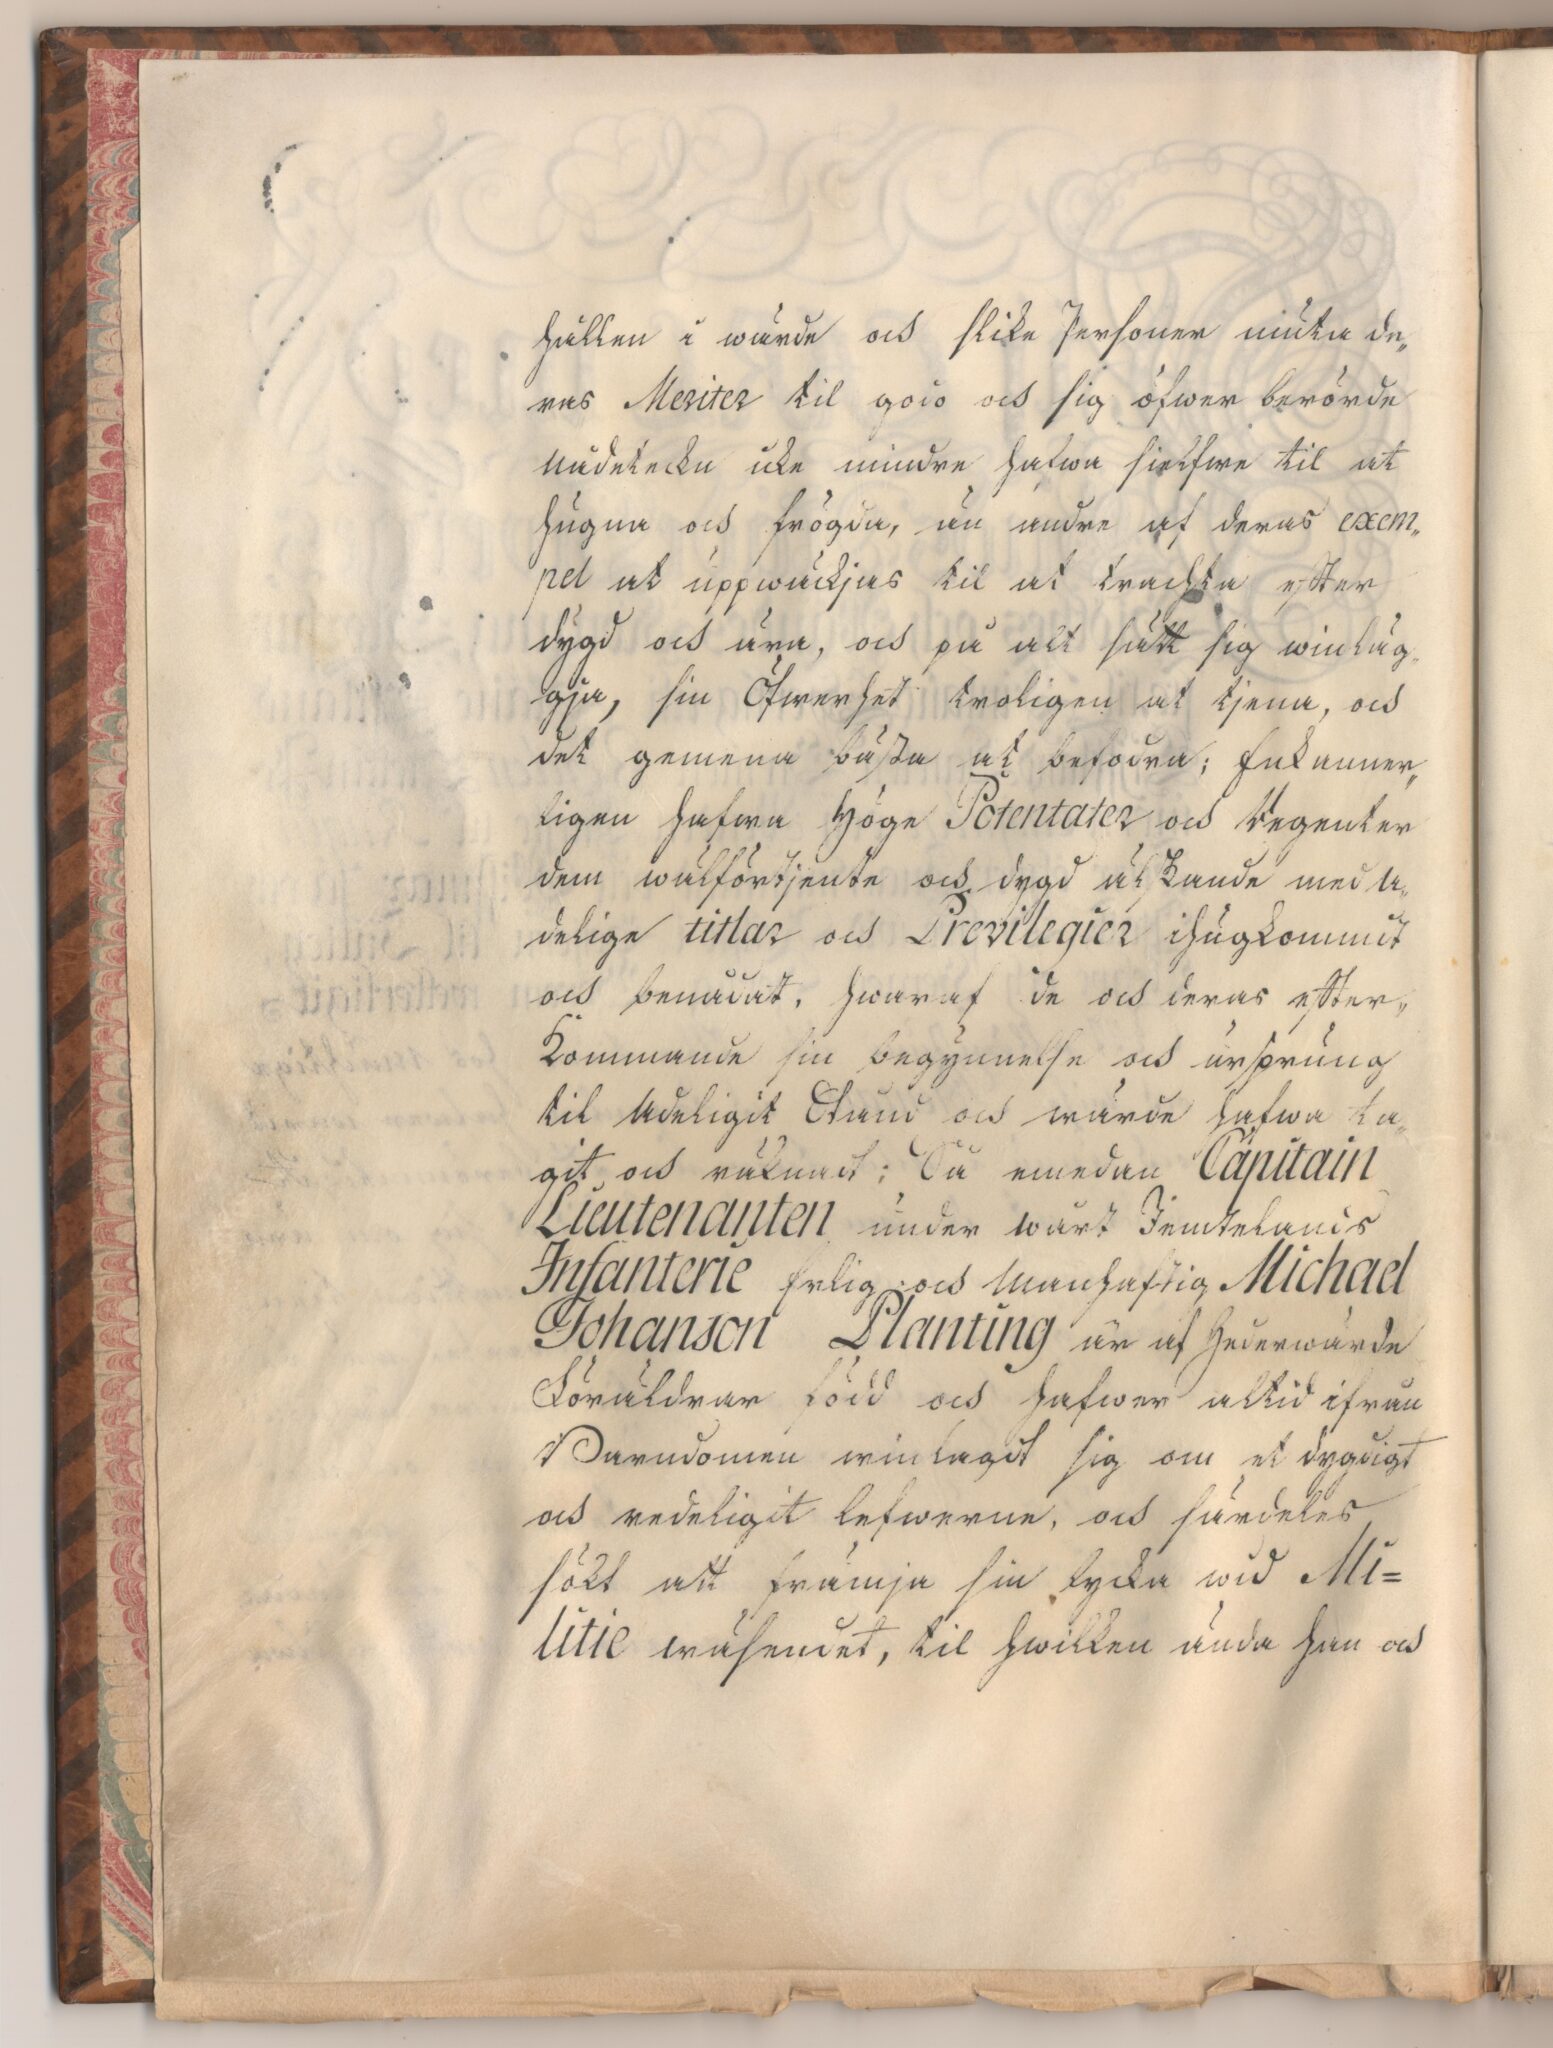 hållen i wärde och slike Personer niuta de„
ras Meriter til godo och sig öfwer berörde
Nådetecken icke mindre hafwa sielfwe til at
hugna och frögda, än andre af deras exem„
pel at uppwäckjas til at trachta effter
dygd och ära, och på alt sätt sig winläg„
gja, sin Öfwerhet troligen at tjena, och
det gemena bästa at befodra; Enkanner„
ligen hafwa Höge Potentater och Regenter
dem wälförtjente och dygd älskande med A„
delige titlar och Previlegier ihugkommit
och benådat, hwaraf de och deras effter„
kommande sin begynnelse och ursprung
til Adeligit Stånd och wärde hafwa ta„
git och räknadt; Så emedan Capitain
Lieutenanten under wårt Jemtelands
Infanterie Erlig och Manhaftig Michael
Johanson Planting är af Hederwärde
Föräldrar född och hafwer altid ifrån
Barndomen winlagdt sig om et dygdigt
och redeligit lefwerne, och särdeles
sökt att främja sin lycka wid Mi=
litie wäsendet, til hwilken ända han och